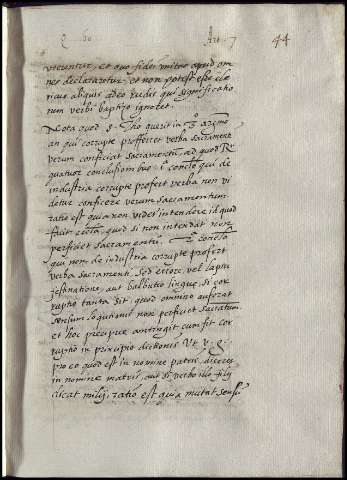 Q 60 Art 7 44
uterentur, et quo fides unitas apud om
nes declararetur et non potest esse cle
ricus aliquis adeo rudis qui significatio
nem verbi baptizo ignoret.
Nota quod S. Tho querit in
an qui corrupte profferet verba sacrament
verum conficiat Sacramentū, ad quod R
quatuor conclusionibus 1ª conclo qui de
industria corrupte profert verba non vi
detur conficere verum sacramentum
ratio est quia non videt intendere id quod
facit ecclā, quod si non intendat non
perficiet sacramentū. 2ª conclo
qui non de industria corrupte profert
verba sacramenti, sed errore, vel lapsu
festinatione, aut balbutie lingue, si cor
ruptio tanta sit, quod omnino auferat
sensum loquutionis non perficiet sacratum
et hoc precipue contingit cum sit cor
ruptio in principio dictionis
pro eo quod est in nomine patris, diceret
in nomine matris, aut si pro illo filij
dicat milij, ratio est quia mutat sensū